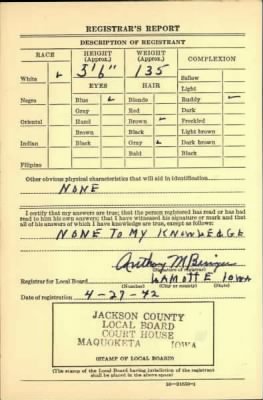 REGISTRAR'S REPORT
DESCRIPTION OF REGISTRANT
RACE HEIGHT (Approx.) WEIGHT (Approx.) COMPLEXION
White ✓ 5'6" 135 Sallow
EYES HAIR Light
Negro Blue ✓ Blonde Ruddy ✓
Gray Red Dark
Oriental Hazel Brown ✓ Freckled
Brown Black Light brown
Indian Black Gray ✓ Dark brown
Bald Black
Filipino
Other obvious physical characteristics that will aid in identification
NONE
I certify that my answers are true; that the person registered has read or has had
read to him his own answers; that I have witnessed his signature or mark and that
all of his answers of which I have knowledge are true, except as follows:
NONE TO MY KNOWLEDGE
Anthony M
(Signature of registrar)
Registrar for Local Board LAMOTTE IOWA
(Number) (City or county) (State)
Date of registration 4-27-42
JACKSON COUNTY
LOCAL BOARD
COURT HOUSE
MAQUOKETA IOWA
(STAMP OF LOCAL BOARD)
(The stamp of the Local Board having jurisdiction of the registrant
shall be placed in the above space)